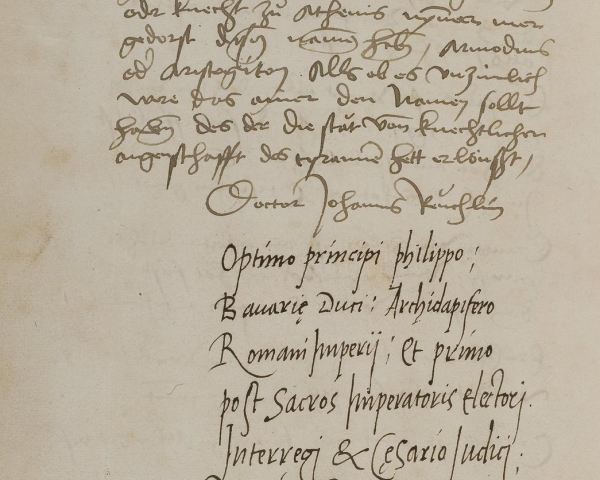 oder knecht zu Athenis nymer mer
gedorst disen namen haben, Armodius
od Aristogiton. Alls ob es unzimlich
ware das ainer den Namen sollt
haben des der die stat von knechtlichen
aigenschafft des tyrannen hett erlönsst,
Doctor Johannes Reuchlin
Optimo principi philippo;
Bauarię Duci: Archidapifero
Romani Imperij; Et primo
post Sacros Imperatoris Electori.
Interregi & Cęsario Iudici;